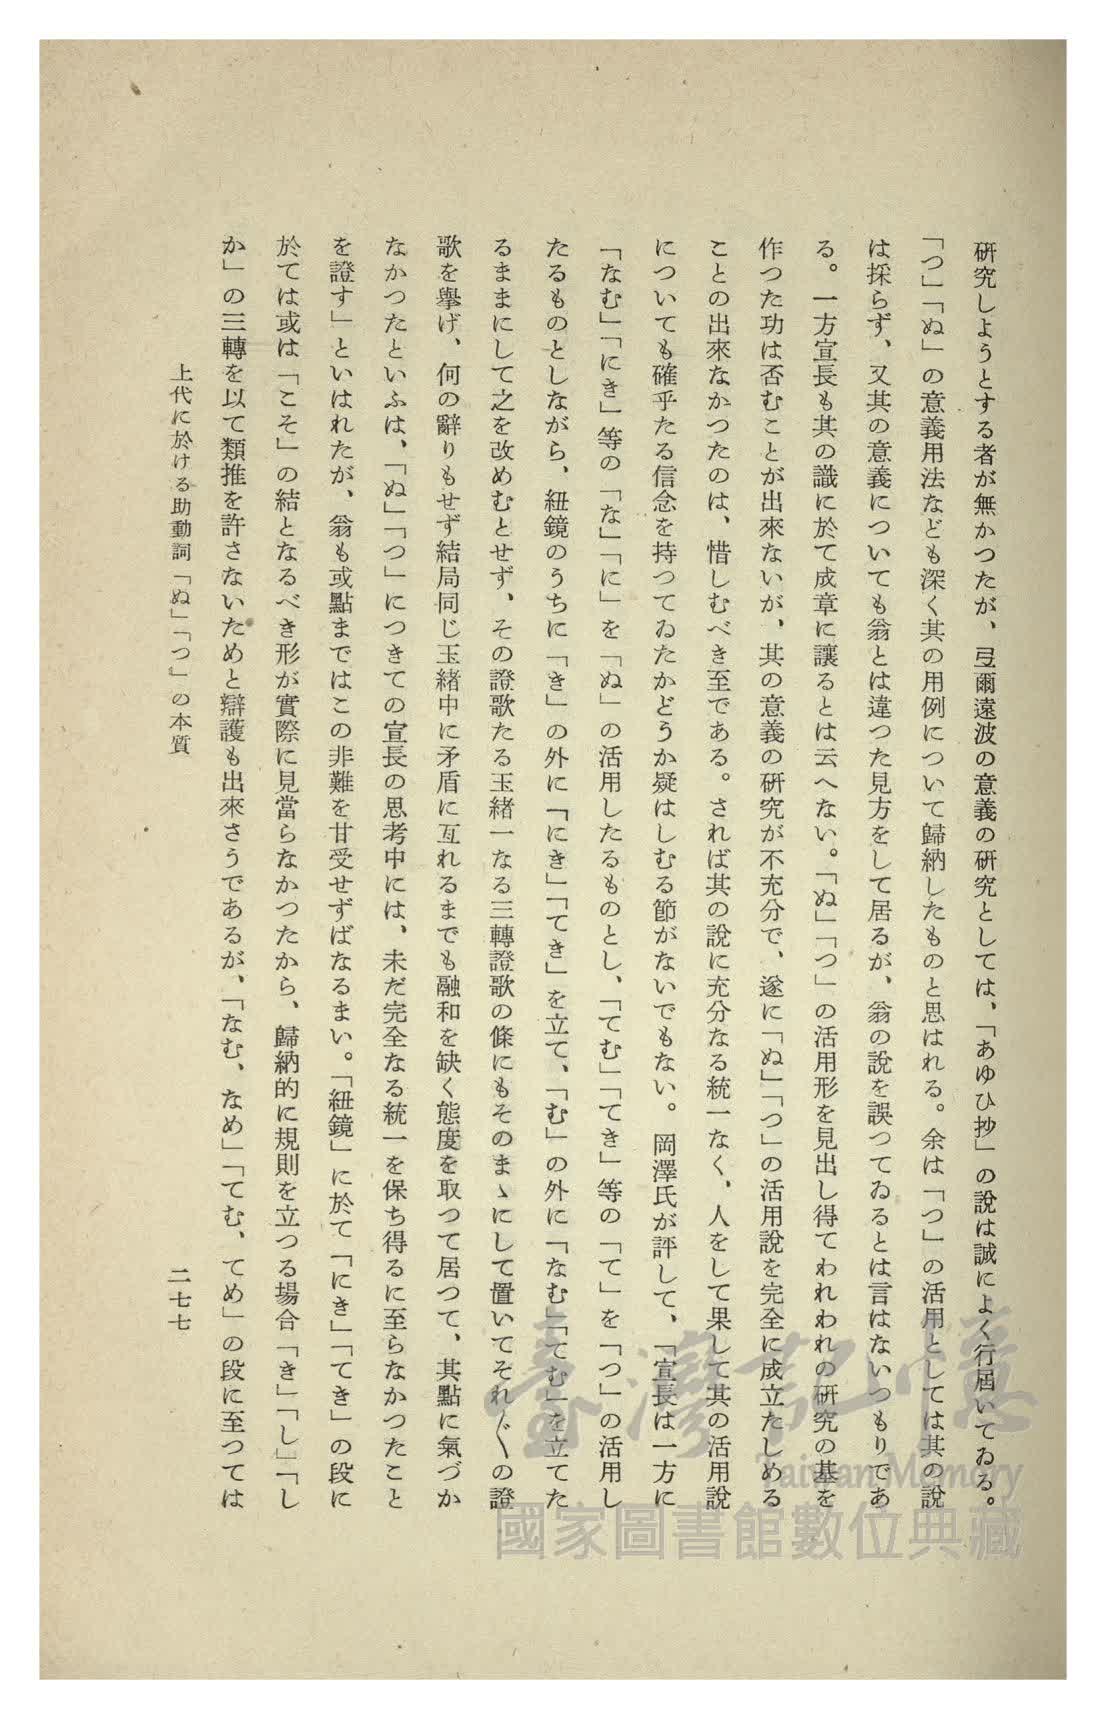 研究しようとする者が無かつたが、弖爾遠波の意義の研究としては、「あゆひ抄」の說は誠によく行屆いてゐる。
「つ」「ぬ」の意義用法なども深く其の用例について歸納したものと思はれる。余は「つ」の活用としては其の說
は採らず、又其の意義についても翁とは違つた見方をして居るが、翁の說を誤つてゐるとは言はないつもりであ
る。一方宣長も其の識に於て成章に讓るとは云へない。「ぬ」「つ」の活用形を見出し得てわれわれの硏究の基を
作つた功は否むことが出來ないが、其の意義の硏究が不充分で、遂に「ぬ」「つ」の活用說を完全に成立たしめる
ことの出來なかつたのは、惜しむべき至である。されば其の說に充分なる統一なく、人をして果して其の活用說
についても確乎たる信念を持つてゐたかどうか疑はしむる節がないでもない。岡澤氏が評して、「宣長は一方に
「なむ」「にき」等の「な」「に」を「ぬ」の活用したるものとし、「てむ」「てき」等の「て」を「つ」の活用し
たるものとしながら、紐鏡のうちに「き」の外に「にき」「てき」を立て、「む」の外に「なむ」「てむ」を立てた
るままにして之を改めむとせず、その證歌たる玉緒一なる三轉證歌の條にもそのまゝにして置いてそれ〲の證
歌を擧げ、何の辭りもせず結局同じ玉緒中に矛盾に亙れるまでも融和を缺く態度を取つて居つて、其點に氣づか
なかつたといふは、「ぬ」「つ」につきての宣長の思考中には、未だ完全なる統一を保ち得るに至らなかつたこと
を證す」といはれたが、翁も或點まではこの非難を甘受せずばなるまい。「紐鏡」に於て「にき」「てき」の段に
於ては或は「こそ」の結となるべき形が實際に見當らなかつたから、歸納的に規則を立つる場合「き」「し」「し
か」の三轉を以て類推を許さないためと辯護も出來さうであるが、「なむ、なめ」「てむ、てめ」の段に至つては
上代に於ける助動詞「ぬ」「つ」の本質
二七七
臺灣記憶
Taiwan Memory
國家圖書館數位典藏